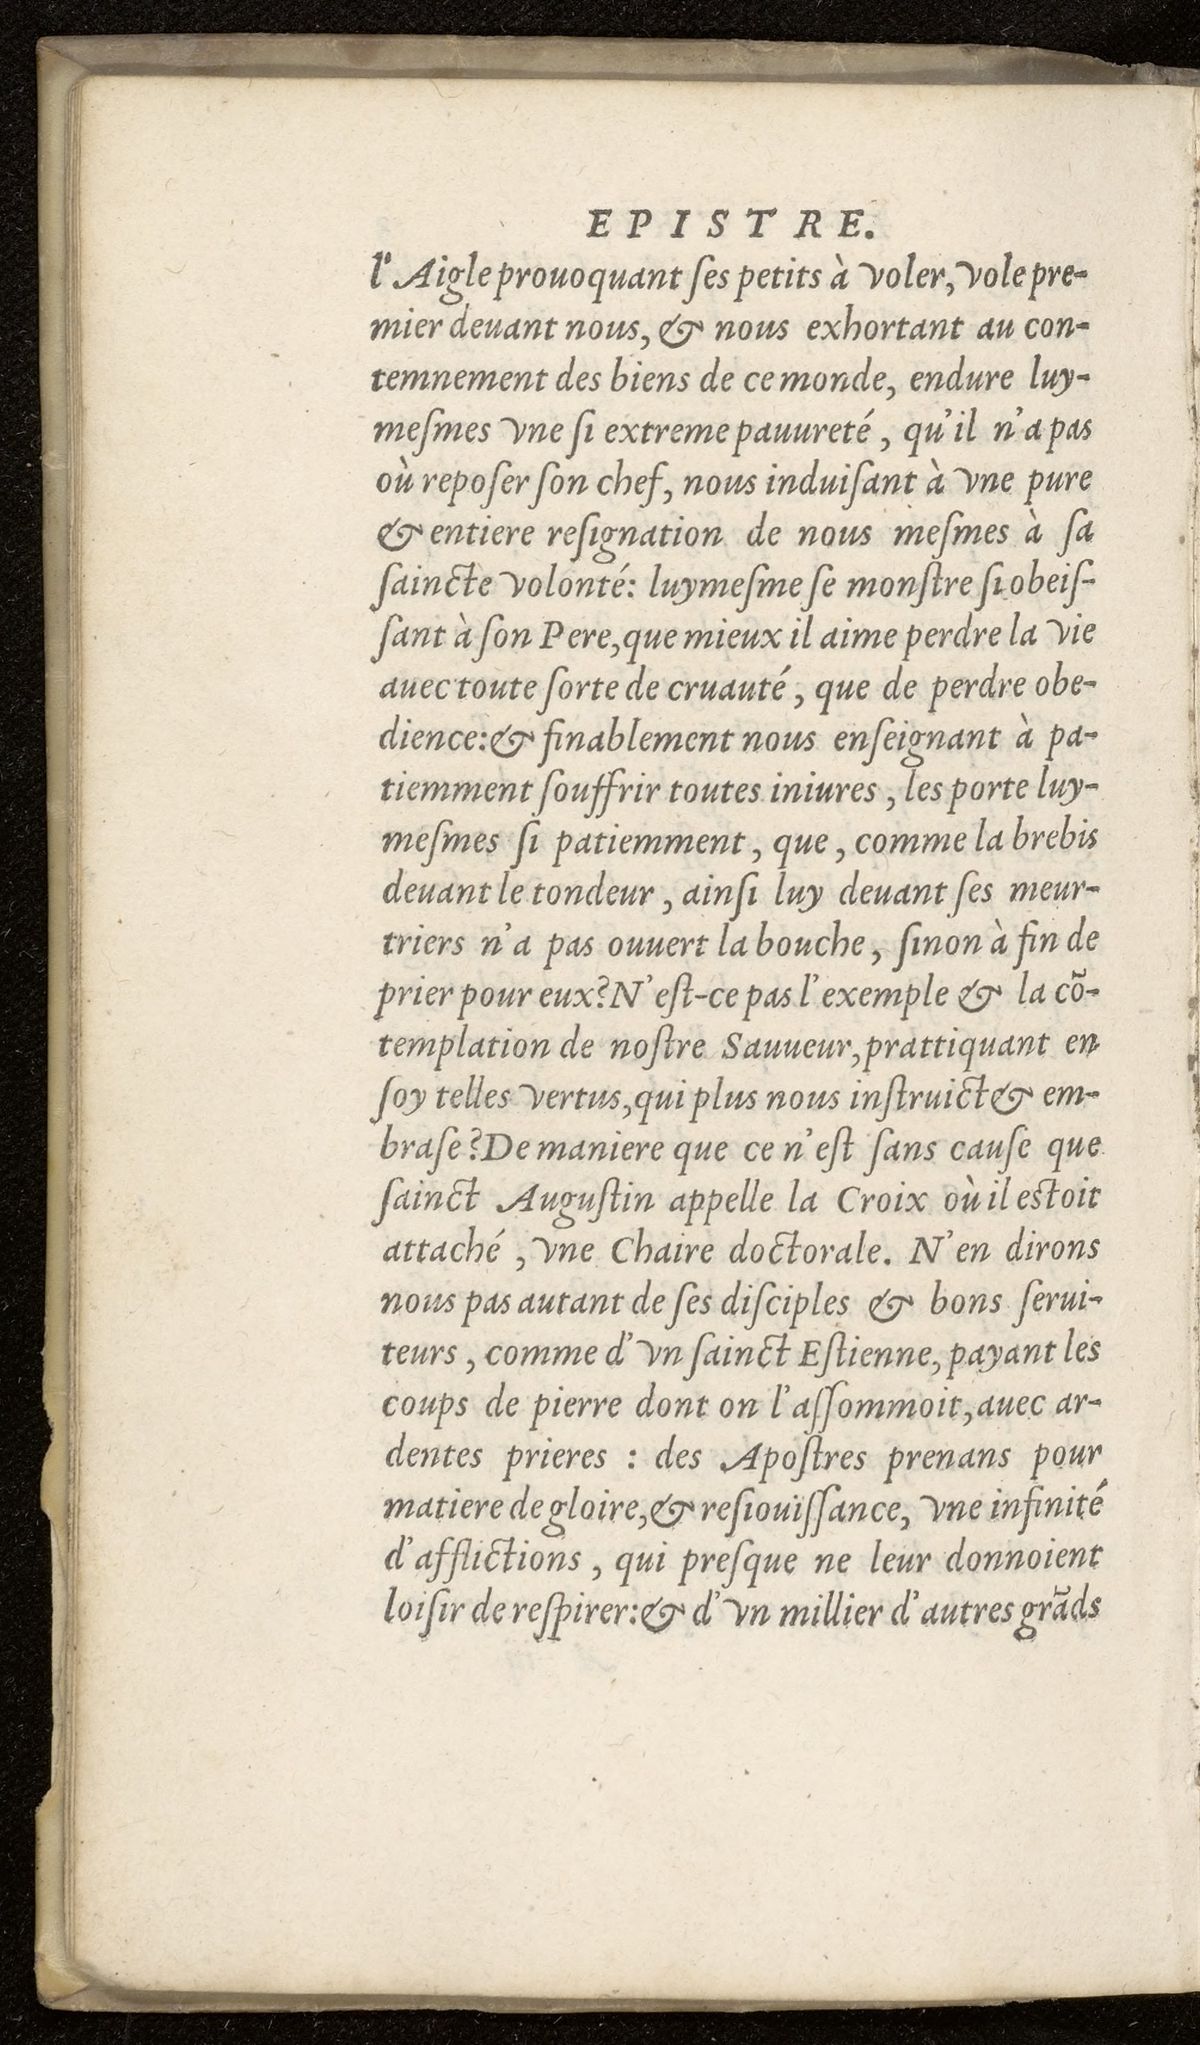 EPISTRE.
l'Aigle prouoquant ſes petits à voler, vole pre-
mier deuant nous, & nous exhortant au con-
temnement des biens de ce monde, endure luy-
meſmes vne ſi extreme pauureté, qu'il n'a pas
où repoſer ſon chef, nous induiſant à vne pure
& entiere reſignation de nous meſmes à ſa
ſaincte volonté: luymeſme ſe monſtre ſi obeiſ-
ſant à ſon Pere, que mieux il aime perdre la vie
auec toute ſorte de cruauté, que de perdre obe-
dience: & finablement nous enſeignant à pa-
tiemment ſouffrir toutes iniures, les porte luy-
meſmes ſi patiemment, que, comme la brebis
deuant le tondeur, ainſi luy deuant ſes meur-
triers n'a pas ouuert la bouche, ſinon à fin de
prier pour eux? N'eſt-ce pas l'exemple & la cõ-
templation de noſtre Sauueur, prattiquant en
ſoy telles vertus, qui plus nous inſtruict & em-
braſe? De maniere que ce n'eſt ſans cauſe que
ſainct Auguſtin appelle la Croix où il eſtoit
attaché, vne Chaire doctorale. N'en dirons
nous pas autant de ſes diſciples & bons ſerui-
teurs, comme d'vn ſainct Eſtienne, payant les
coups de pierre dont on l'aſſommoit, auec ar-
dentes prieres : des Apoſtres prenans pour
matiere de gloire, & reſiouiſſance, vne infinité
d'afflictions, qui preſque ne leur donnoient
loiſir de reſpirer: & d'vn millier d'autres grãds